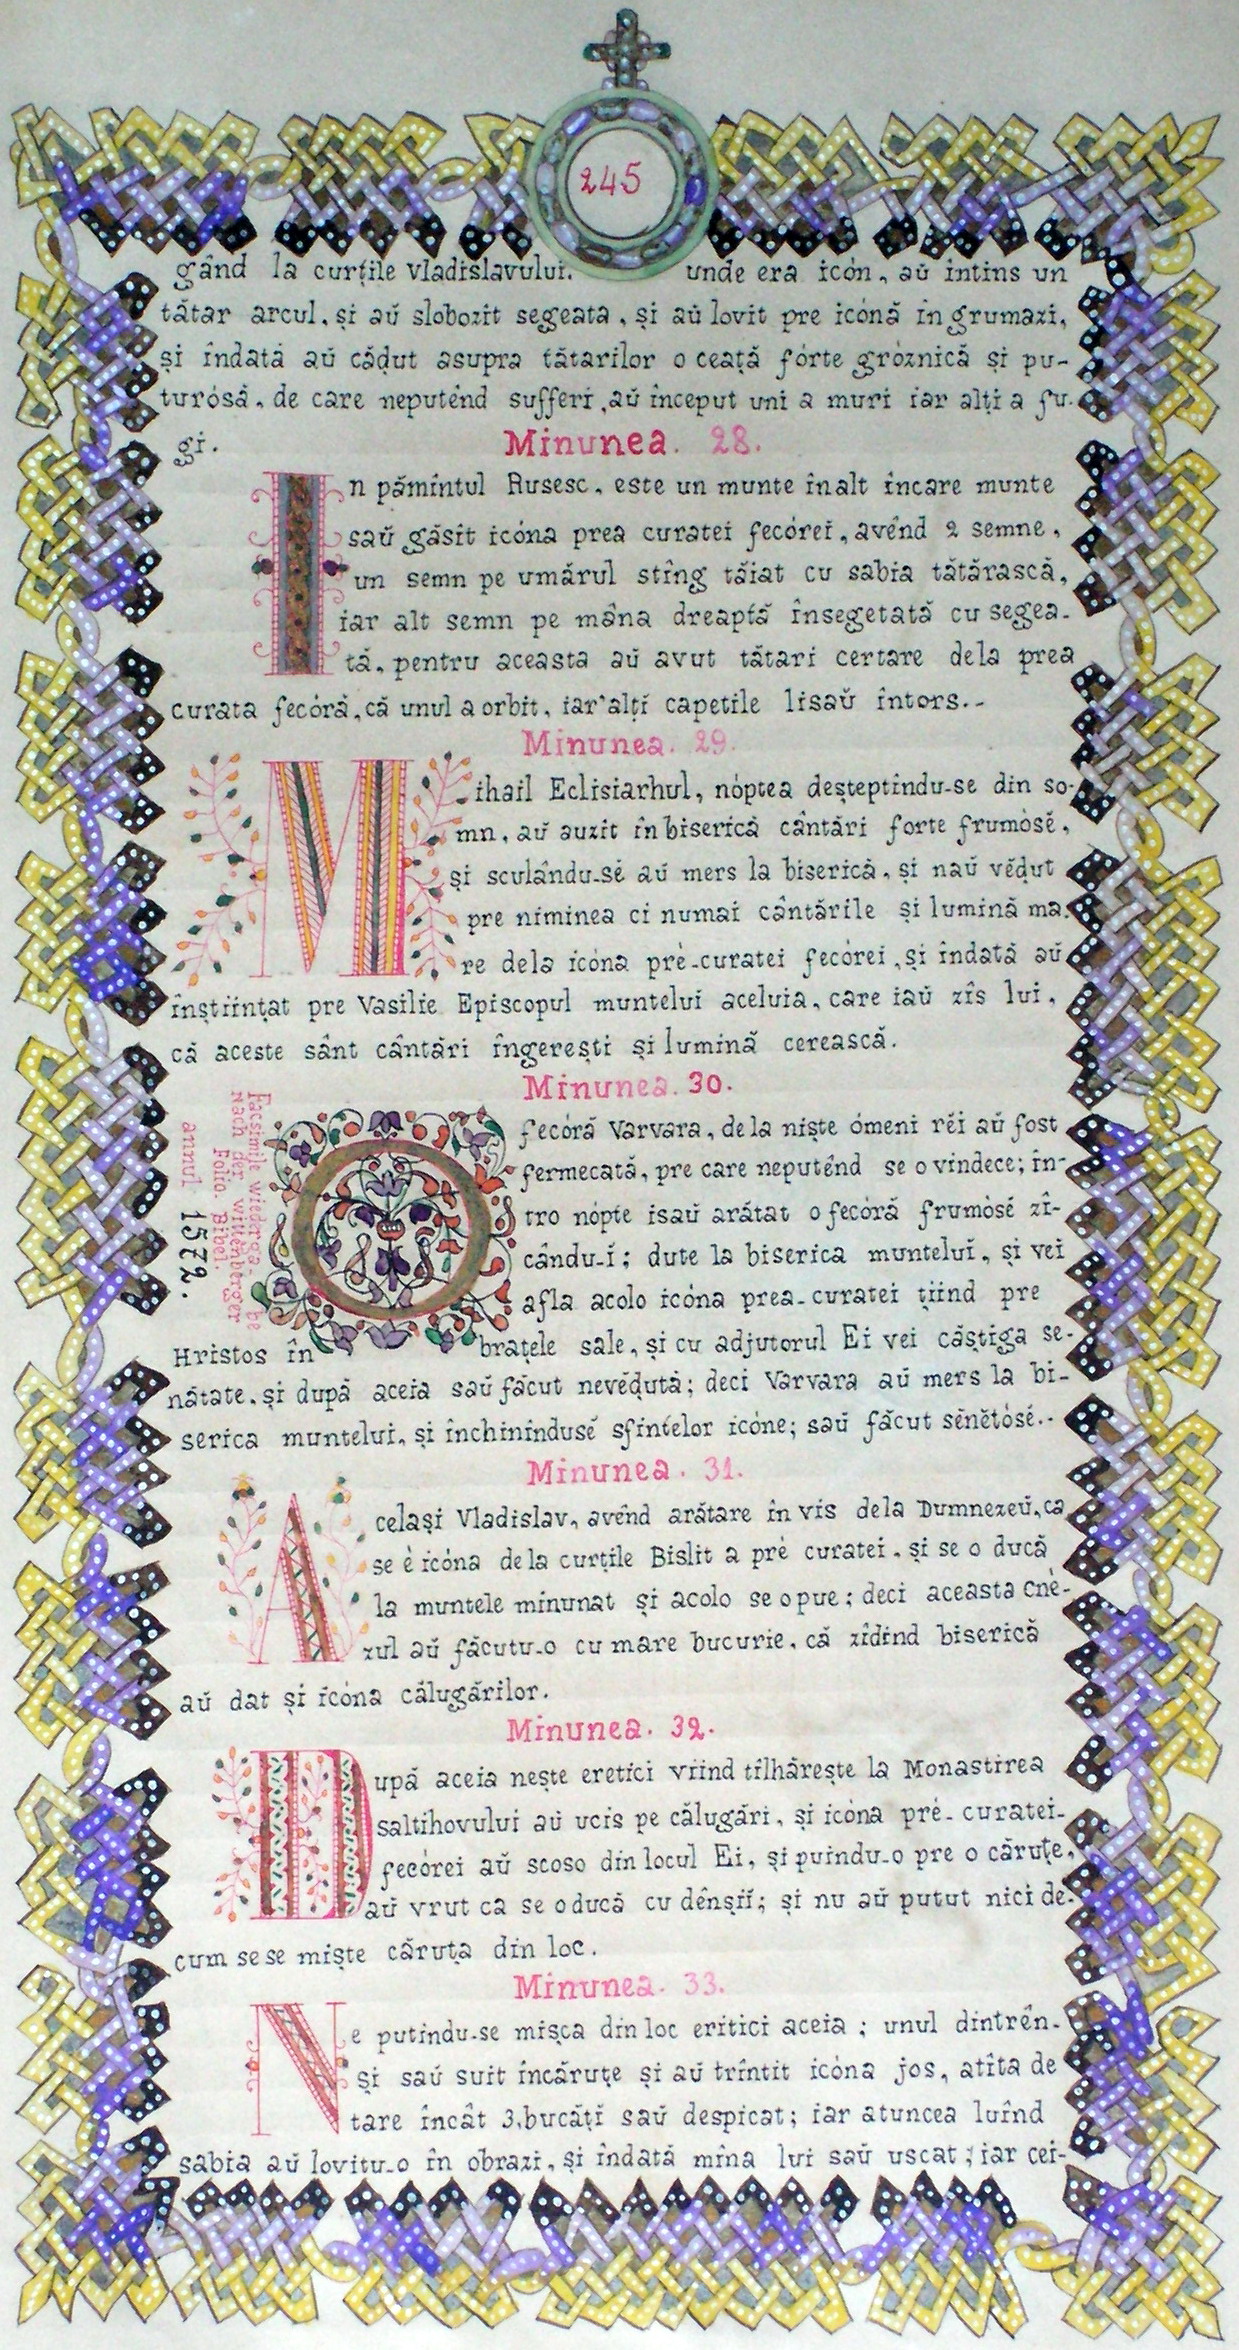 245
gând la curțile vladislavului. unde era icón, aŭ întins un
tătar arcul, și aŭ slobozit segeata, și aŭ lovit pre icónă în grumazi,
și îndată aŭ căḑut asupra tătarilor o ceață fórte gróznică și pu-
turósă, de care neputênd sufferi, aŭ început uni a muri iar alți a fu-
gi.
Minunea. 28.
In pămîntul Rusesc, este un munte înalt încare munte
saŭ găsit icóna prea curatei fecórei, avênd 2 semne,
un semn pe umărul stîng tăiat cu sabia tătărască,
iar alt semn pe mâna dreaptă însegetată cu segea-
tă, pentru aceasta aŭ avut tătari certare dela prea
curata fecóră, că unul a orbit, iar alți capetile lisaŭ întors.-
Minunea. 29.
Mihail Eclisiarhul, nóptea deșteptîndu-se din so-
mn, aŭ auzit în biserică cântări forte frumósĕ,
și sculându-sĕ aŭ mers la biserică, și naŭ vĕḑut
pre niminea ci numai cântările și lumină ma-
re dela icóna pré-curatei fecórei, și îndată aŭ
înștiințat pre Vasilie Episcopul muntelui aceluia, care iaŭ zîs lui,
că aceste sânt cântări îngerești și lumină cerească.
Minunea. 30.
O fecóră Varvara, de la niște ómeni rĕi aŭ fost
fermecată, pre care neputênd se o vindece; în-
tro nópte isaŭ arătat o fecóră frumósĕ zî-
cându-i; dute la biserica muntelui, și vei
afla acolo icóna prea-curatei țiind pre
Hristos în brațele sale, și cu adjutorul Ei vei câștiga se-
nătate, și după aceia saŭ făcut nevĕḑută; deci Varvara aŭ mers la bi-
serica muntelui, și închinîndusĕ sfintelor icóne; saŭ făcut sĕnĕtósĕ.-
Facsimile wiederga- be
Nach der wittenberger
Folio Bibel.
annul 1572.
Minunea. 31.
Același Vladislav, avênd arătare în vis dela Dumnezeŭ, ca
se é icóna dela curțile Bislit a pré curatei, și se o ducă
la muntele minunat și acolo se o pue; deci aceasta cné-
zul aŭ făcutu-o cu mare bucurie, că zîdind biserică
aŭ dat și icóna călugărilor.
Minunea. 32.
După aceia nește eretici vriind tîlhărește la Monastirea
saltihovului aŭ ucis pe călugări, și icóna pré-curatei-
fecórei aŭ scoso din locul Ei, și puindu-o pre o căruțe,
aŭ vrut ca se o ducă cu dênșii; și nu aŭ putut nici de-
cum se se miște căruța din loc.
Minunea. 33.
Ne putîndu-se mișca din loc eritici aceia; unul dintrên-
și saŭ suit încăruțe și aŭ trîntit icóna jos, atîta de
tare încât 3, bucăți saŭ despicat; iar atuncea luînd
sabia aŭ lovitu-o în obrazi, și îndată mîna lui saŭ uscat; iar cei-